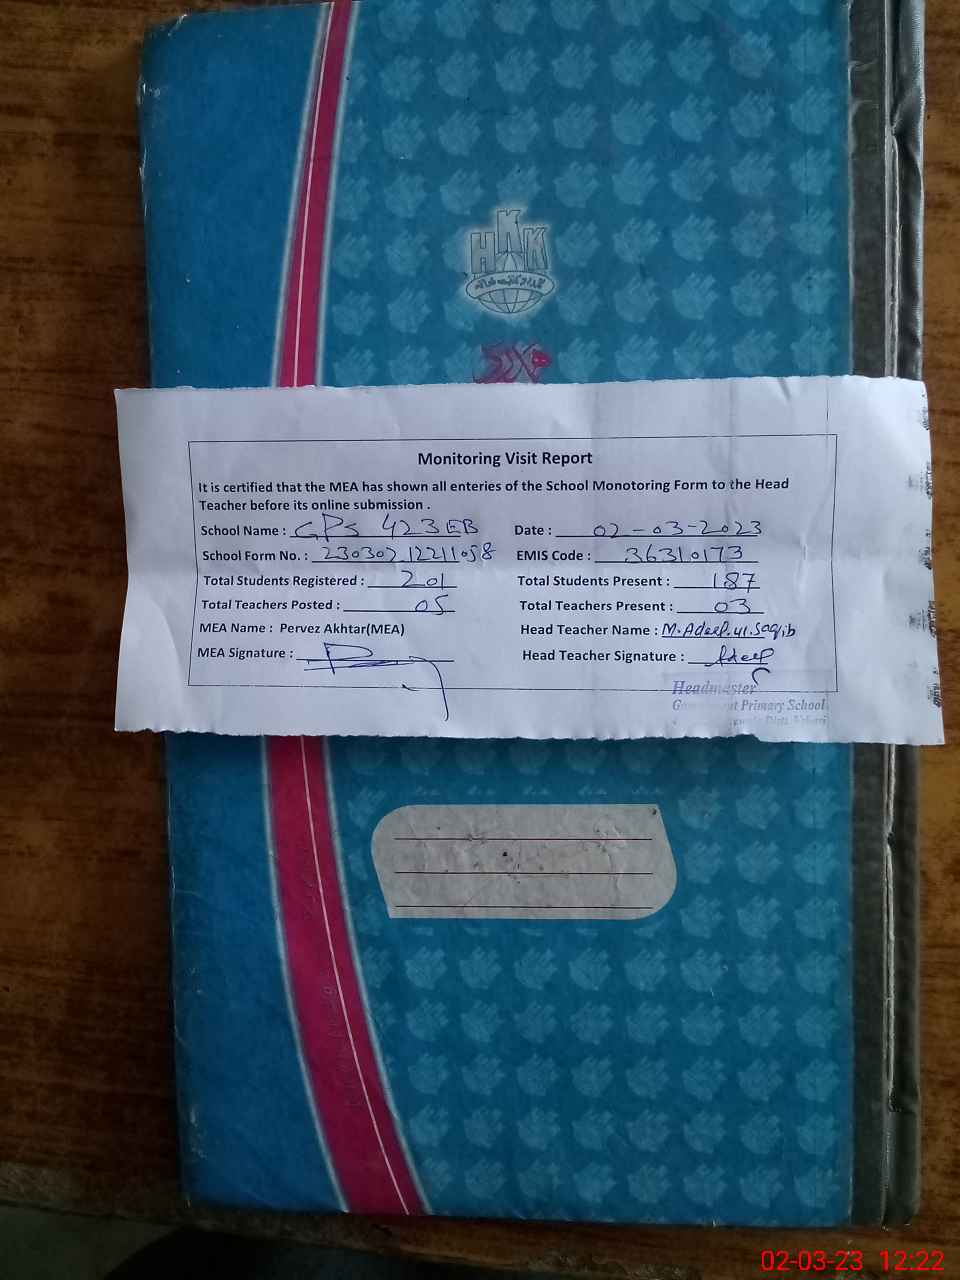 HKK
Monitoring Visit Report
It is certified that the MEA has shown all enteries of the School Monotoring Form to the Head
Teacher before its online submission .
School Name : GPS 423 EB Date : 02-03-2023
School Form No. : 23030212211058 EMIS Code : 36310173
Total Students Registered : 201 Total Students Present : 187
Total Teachers Posted : 05 Total Teachers Present : 03
MEA Name : Pervez Akhtar(MEA) Head Teacher Name : M.Adeep.ul.Saqib
MEA Signature : Head Teacher Signature : Adeep
Headmaster
Government Primary School
02-03-23 12:22